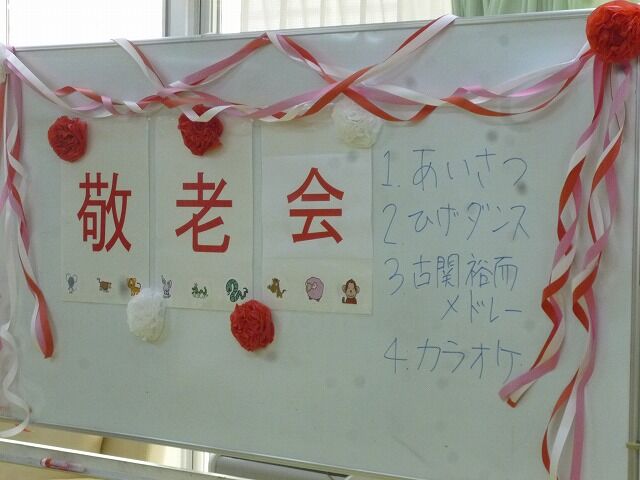 敬老会
1. あいさつ
2. ひげダンス
3. 古関裕而
メドレー
4. カラオケ